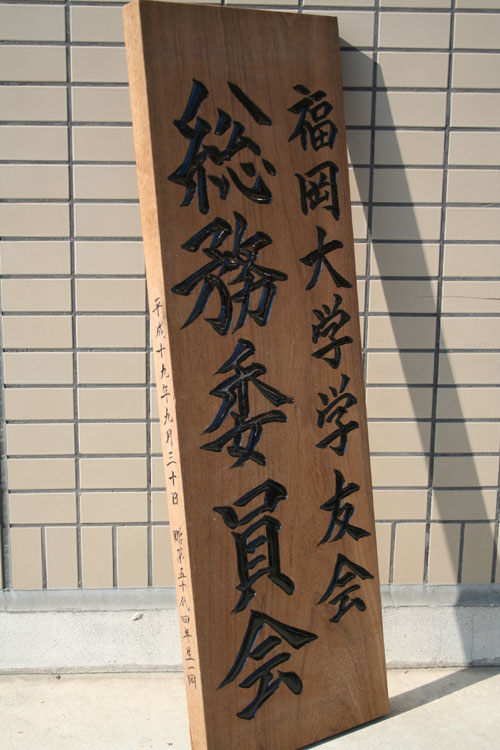 福岡大学学友会
総務委員会
平成十九年九月三十日 贈第五十代四年生一同